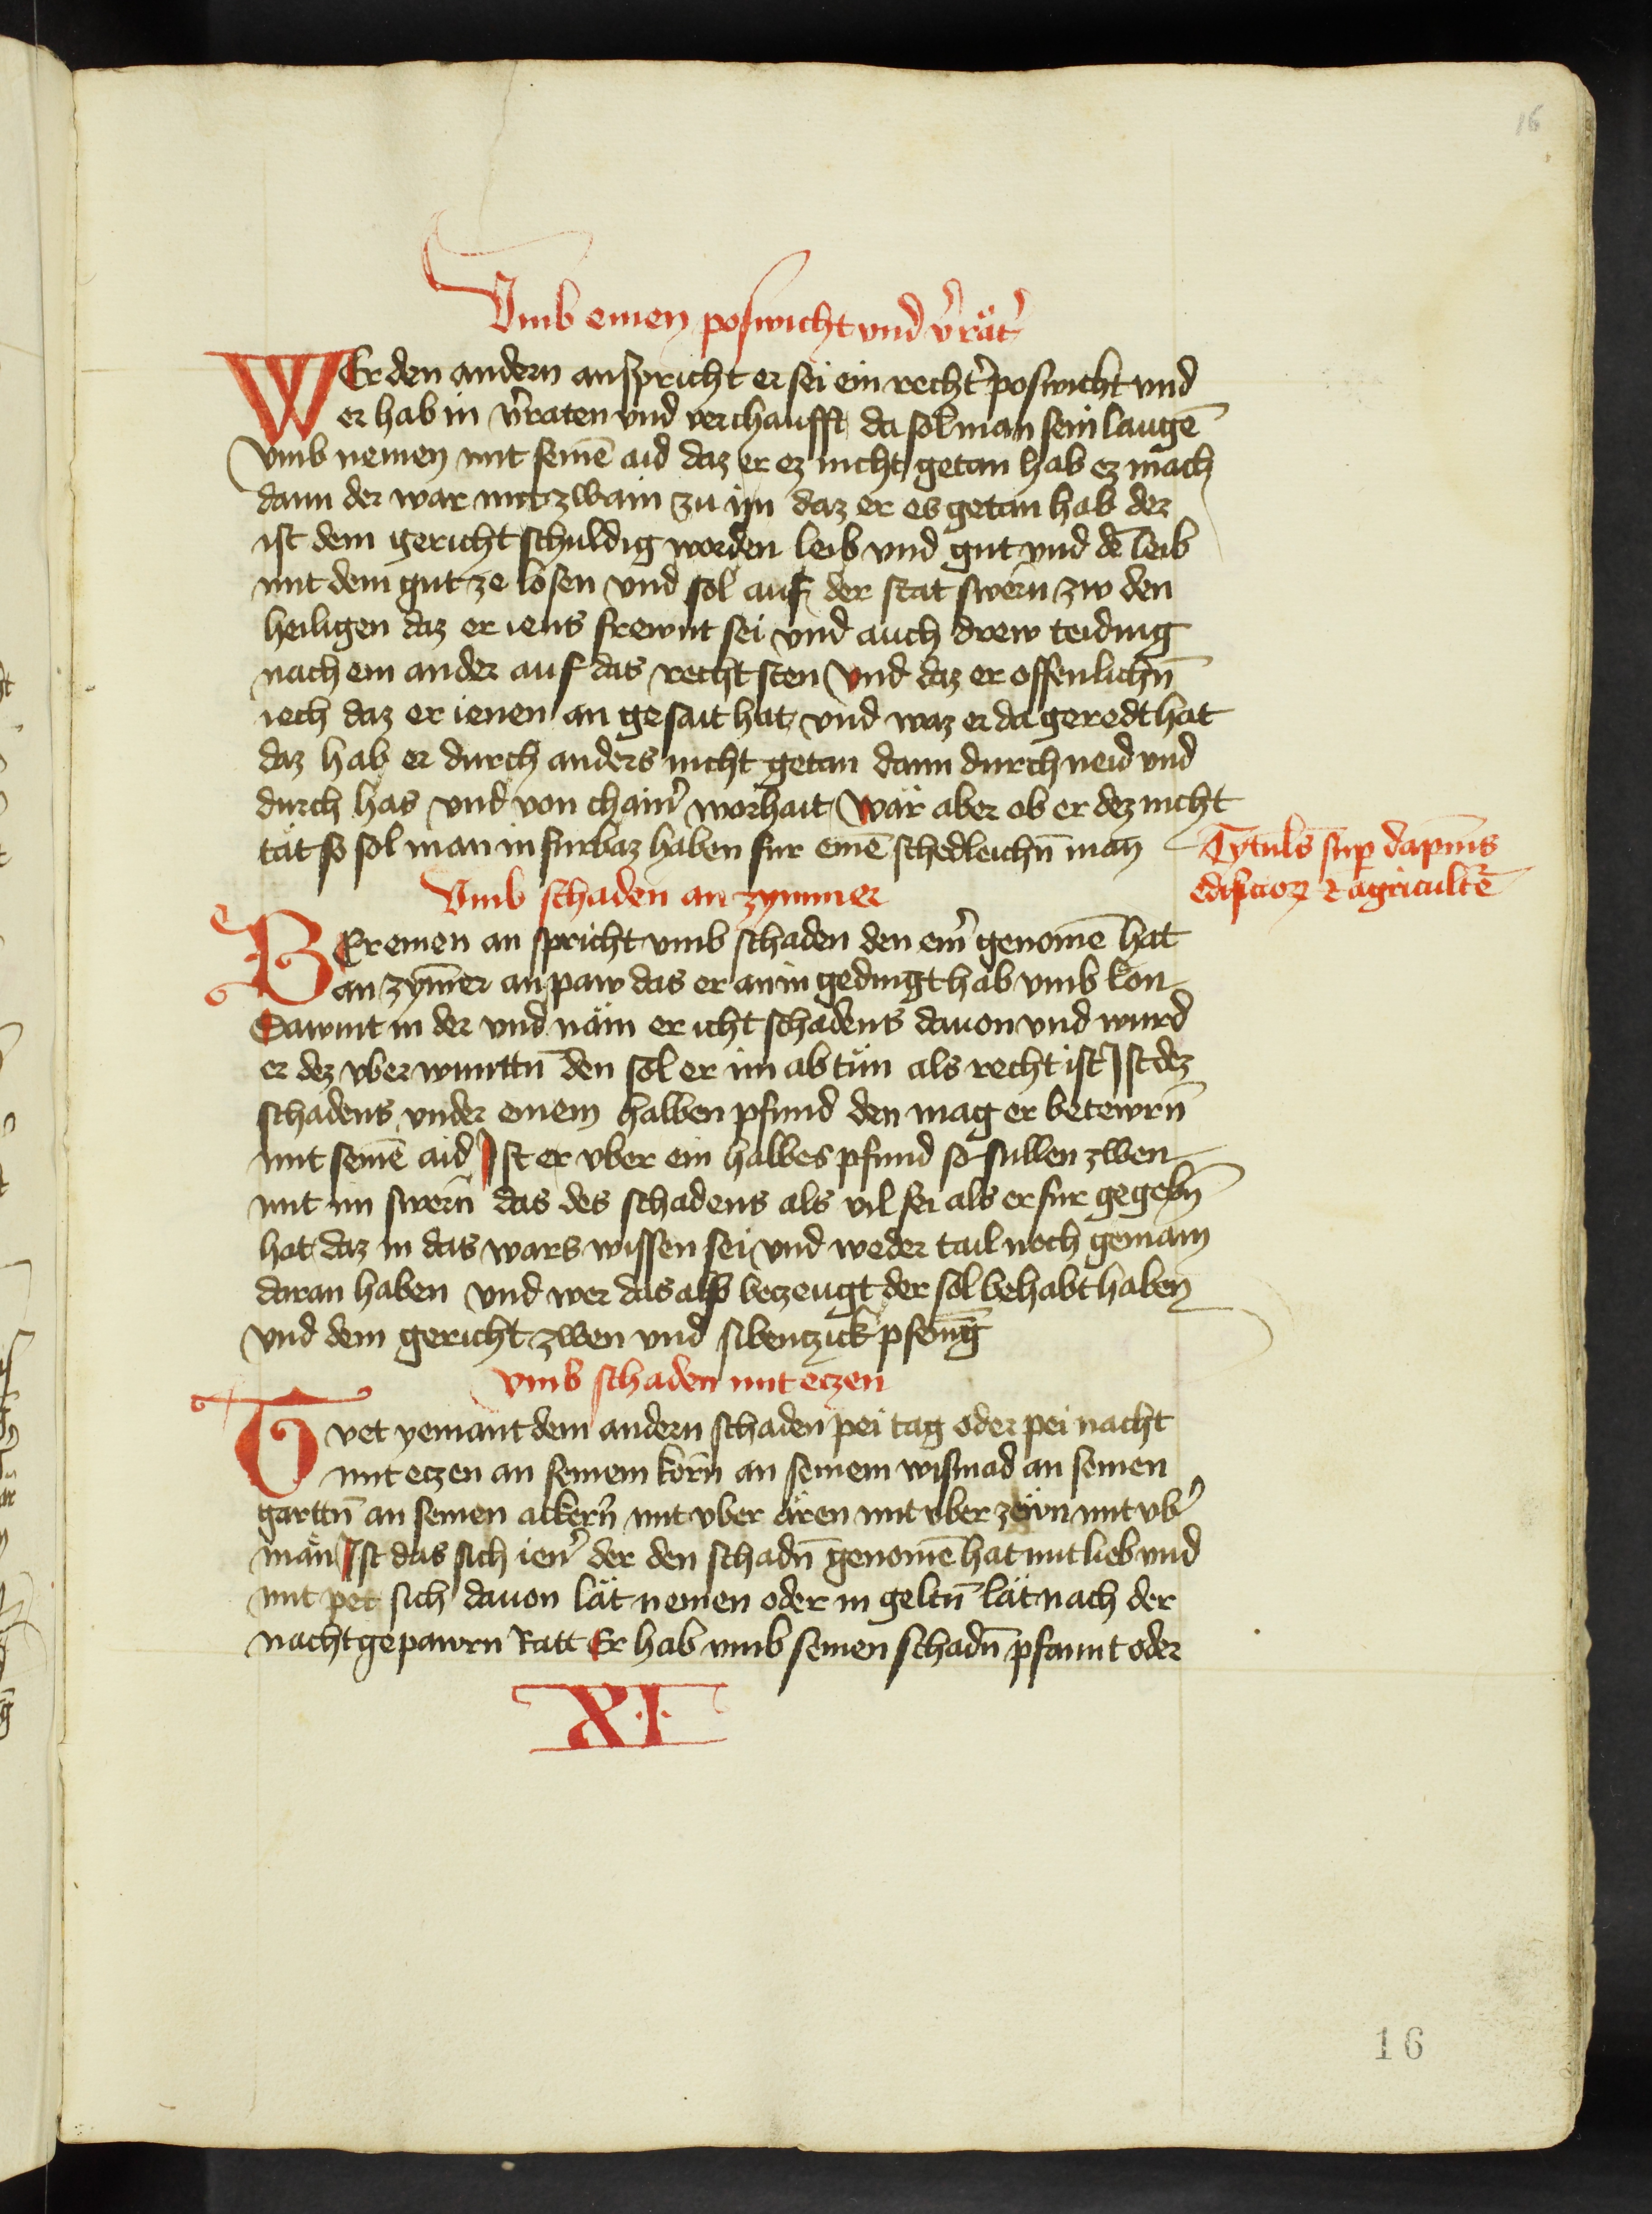 16
Vmb einen poswicht vnd v̉rät̉
WEr den andern anspricht er sei ein recht̉ poswicht vnd
er hab in v̉raten vnd verchaufft da sol man sein laugē
vmb nemen mit seinē aid daz er ez nicht getan hab ez mach
dann der war mit zwain zu im daz er es getan hab der
ist dem gericht schuldig worden leib vnd gut vnd dē leib
mit dem gut ze losen vnd sol auf der stat swern zw den
heiligen daz er iens frewnt sei vnd auch drew teiding
nach ein ander auf das recht sten Vnd daz er offenlichn̄
iech daz er ienen an gesait hat vnd waz er da geredt hat
daz hab er durch anders nicht getan dann durch neid vnd
durch has vnd von chain̉ worhait Wär aber ob er dez nicht
tät so sol man in furbaz haben fur einē schedleichn̄ man
Tytul̄s sup̄ dāpnis
edificior̄ ⁊ agricult̄e
Vmb schaden an zymmer
WEr einen an spricht vmb schaden den ein̉ genomē hat
an zym̄er an paw das er an in gedingt hab vmb lon
Dawmt in der vnd näm er icht schadens dauon vnd wurd
er dez vber wunttn̄ den sol er im ab tün als recht ist Ist dez
schadens vnder einem halben pfund den mag er betewrn̄
mit seinē aid Ist er vber ein halbes pfund so sullen zwen
mit im swern̄ das des schadens als vil sei als er fur gegebn̄
hat daz in das wars wissen sei vnd weder tail noch gemain
daran haben vnd wer das also beczeugt der sol behabt haben
vnd dem gericht zwen vnd sibenczick pfenīg
vmb schaden mit eczen
Tvet yemant dem andern schaden pei tag oder pei nacht
mit eczen an seinem korn̄ an seinem wismad an seinen
garttn̄ an seinen ackern̄ mit vber ären mit vber zewn mit vb̉
män Ist das sich ien̉ der den schadn̄ genomē hat mit lieb vnd
mit pet sich dauon lät nemen oder in geltn̄ lät nach der
nachtgepawrn Ratt Er hab vmb seinen schadn̄ pfannt oder
XI
16